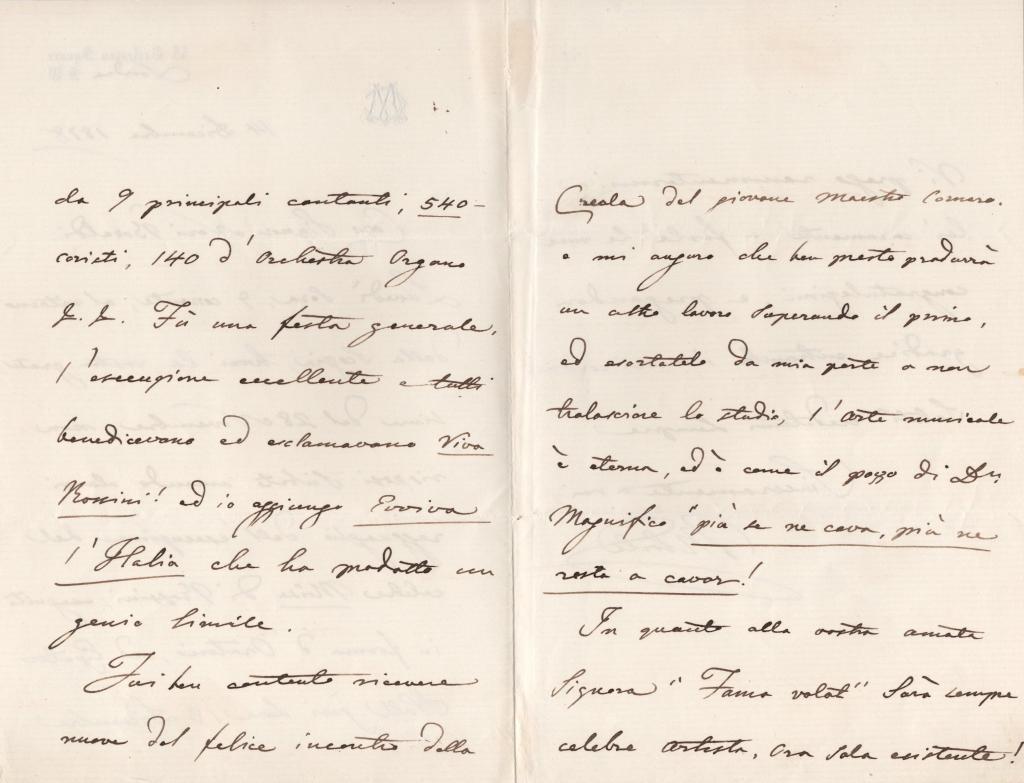 da 9 principali cantanti, 540-
coristi, 140 d'Orchestra Organo
&. &. Fù una festa generale,
l'esecuzione eccellente e tutti
benedicevano ed esclamavano Viva
Rossini! ed io aggiungo Evviva
l'Italia che ha prodotto un
genio simile.
Fui ben contento ricevere
nuove del felice incontro della
Creola del giovane Maestro
e mi auguro che ben presto produrrà
un altro lavoro superando il primo,
ed esortatelo da mia parte a non
tralasciare lo studio, l'arte musicale
è eterna, ed è come il pozzo di Dn
Magnifico "più se ne cava, più ne
resta a cavar!
In quanto alla vostra amata
Signora "Fama volat" Sarà sempre
celebre artista, ora sola esistente!
14 Dicembre 1878